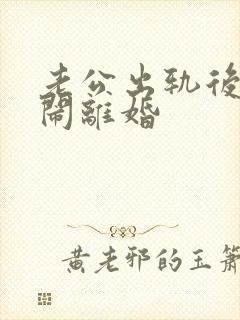 老公出軌後
鬧離婚
黄老邪的玉簫